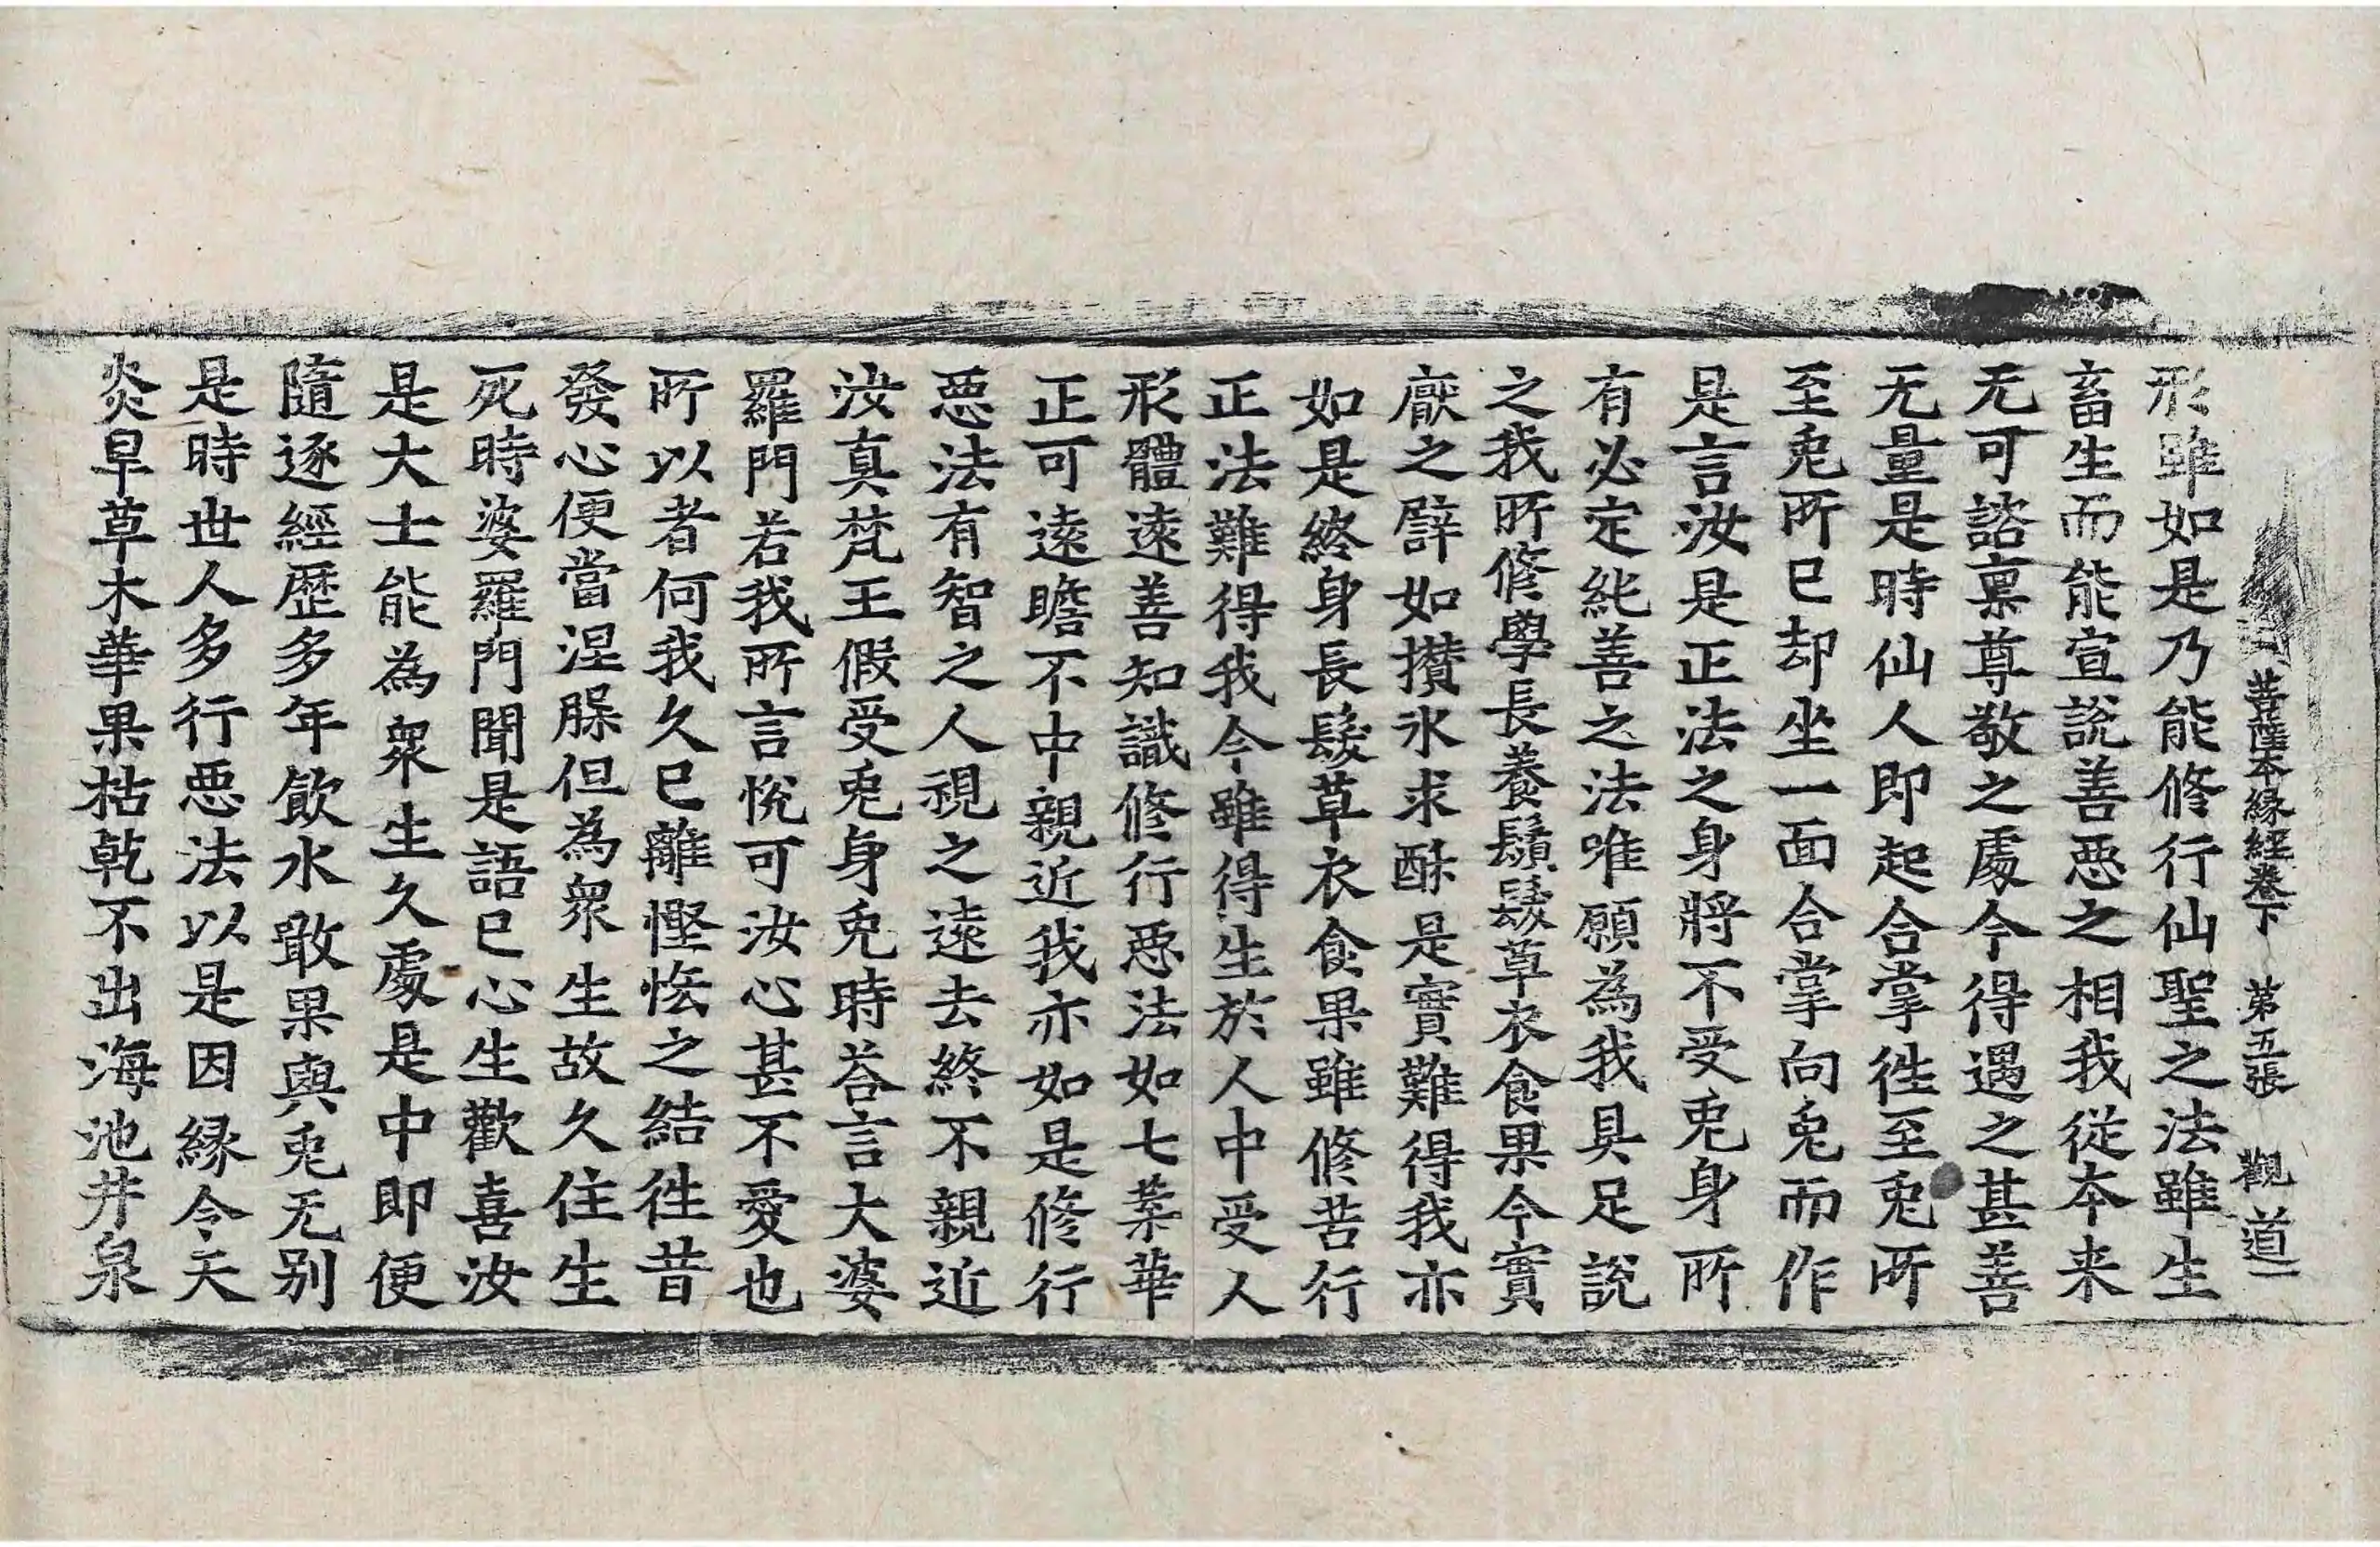 菩薩本縁經卷下 第五張 觀 道一
形雖如是乃能修行仙聖之法雖生
畜生而能宣說善惡之相我從本来
无可諮禀尊敬之處今得遇之甚善
无量是時仙人即起合掌徃至兎所
至兎所已却坐一面合掌向兎而作
是言汝是正法之身將不受兎身所
有必定純善之法唯願為我具足說
之我所修學長養鬚髮草衣食果今實
厭之譬如攢水求酥是實難得我亦
如是終身長髮草衣食果雖修苦行
正法難得我今雖得生於人中受人
形體遠善知識修行惡法如七葉華
正可遠瞻不中親近我亦如是修行
惡法有智之人視之遠去終不親近
汝真梵王假受兎身兎時荅言大婆
羅門若我所言悅可汝心甚不愛也
所以者何我久已離慳悋之結徃昔
發心便當涅槃但為衆生故久住生
死時婆羅門聞是語已心生歡喜汝
是大士能為衆生久處是中即便
隨逐經歷多年飲水噉果與兎无别
是時世人多行惡法以是因縁令天
炎旱草木華果枯乾不出海池井泉